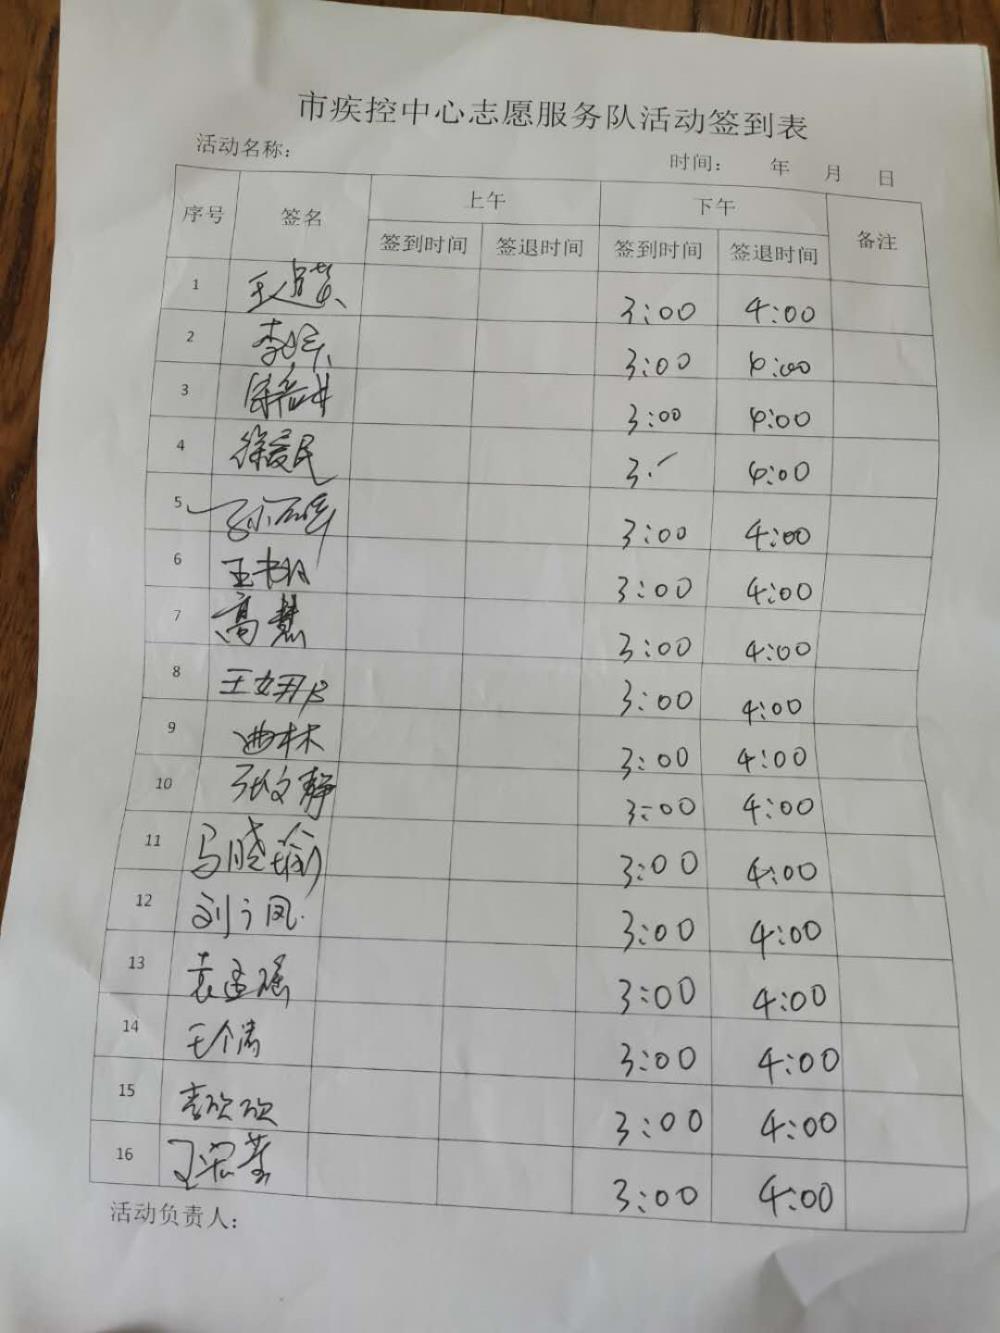 市疾控中心志愿服务队活动签到表
活动名称： 时间： 年 月 日
序号 签名 上午 下午 备注
签到时间 签退时间 签到时间 签退时间
1 3:00 4:00
2 3:00 4:00
3 3:00 4:00
4 徐爱民 3. 4:00
5 3:00 4:00
6 3:00 4:00
7 高慧 3:00 4:00
8 3:00 4:00
9 曲林 3:00 4:00
10 张文静 3:00 4:00
11 马晓瑜 3:00 4:00
12 3:00 4:00
13 袁孟瑶 3:00 4:00
14 3:00 4:00
15 李欣欣 3:00 4:00
16 3:00 4:00
活动负责人：